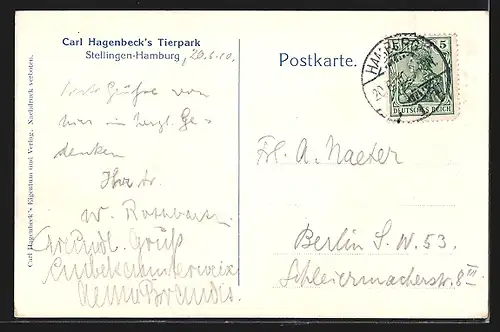 Carl Hagenbeck's Tierpark
Stellingen-Hamburg, 20.6.10.
Postkarte.
HAMBURG
5
DEUTSCHES REICH
Carl Hagenbeck's Eigentum und Verlag. Nachdruck verboten.
Grüße von
hier in herzl. Ge-
denken
Ihr tr.
W.
Freundl. Gruß
Unbekannterweise
Brandes.
Frl. A. Naeter
Berlin S. W. 53.
Schleiermacherstr. 8 III